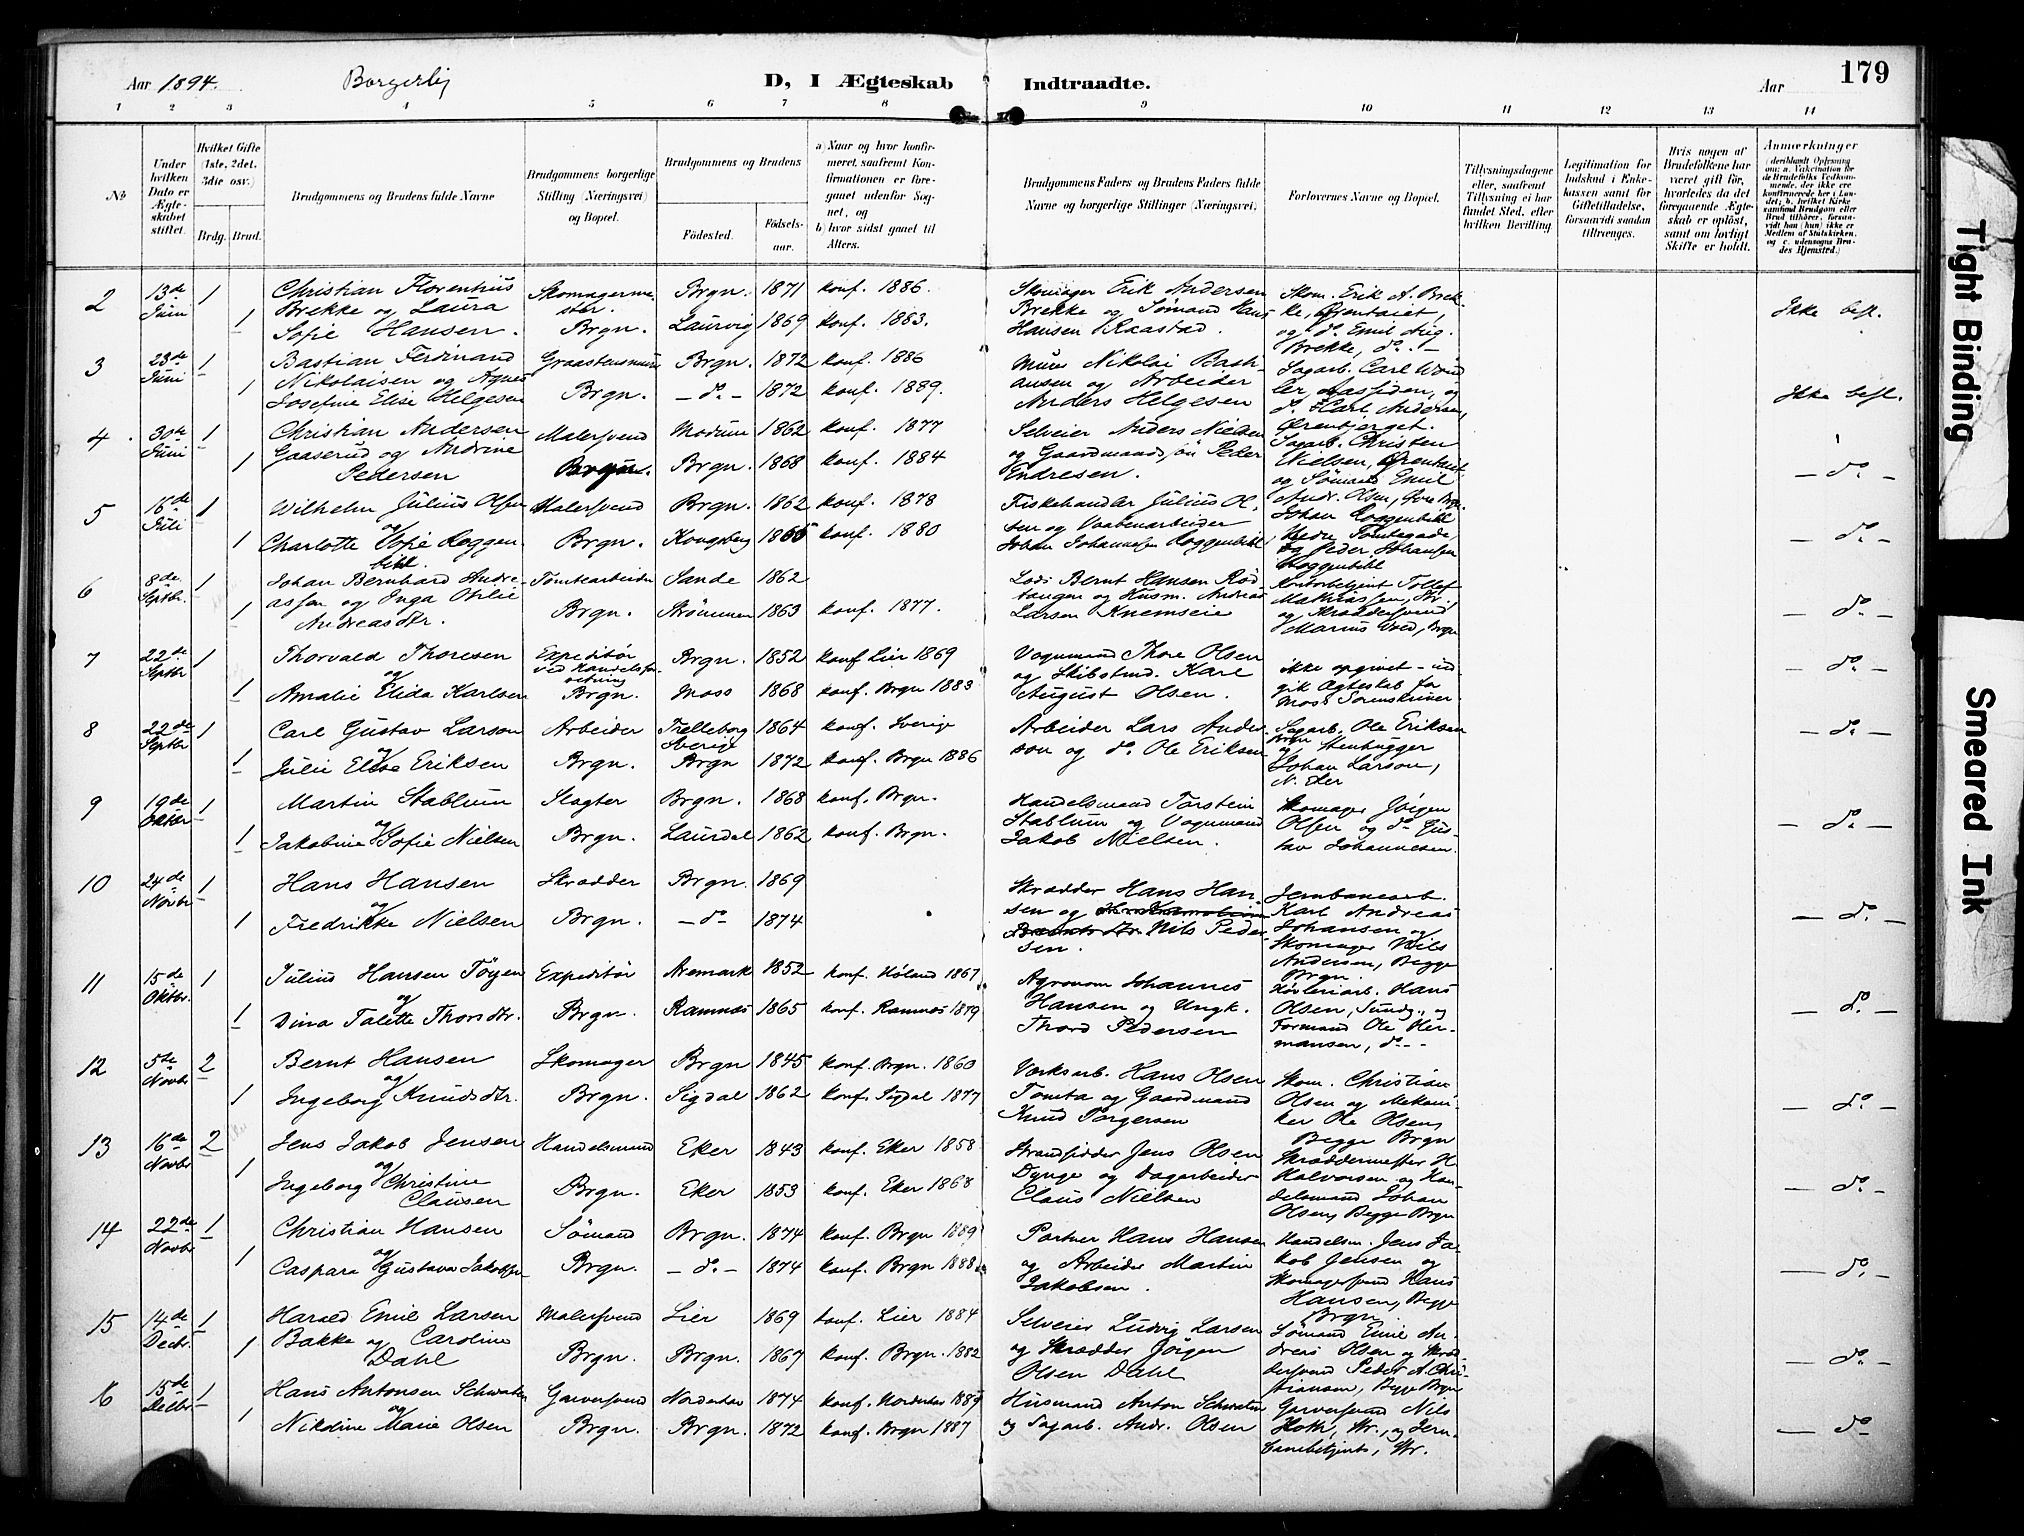 Aar 1894. Borgerlig D, I Ægteskab Indtraadte. Aar 179
1 2 3 4 5 6 7 8 9 10 11 12 13 14
No
Under hvilken Dato er Ægteskabet stiftet.
Hvilket Gifte (1ste, 2det, 3die osv.)
Brdg. Brud.
Brudgommens og Brudens fulde Navne
Brudgommens borgerlige Stilling (Næringsvei) og Bopæl.
Brudgommens og Brudens
Födested.
Födselsaar.
a) Naar og hvor konfirmeret, saafremt Konfirmationen er foregaaet udenfor Sognet, og
b) hvor sidst gaaet til Alters.
Brudgommens Faders og Brudens Faders fulde Navne og borgerlige Stillinger (Næringsvei)
Forlovernes Navne og Bopæl.
Tillysningsdagene eller, saafremt Tillysning ei har fundet Sted, efter hvilken Bevilling.
Legitimation for Indskud i Enkekassen samt for Giftetilladelse, forsaavidt saadan tiltrænges.
Hvis nogen af Brudefolkene har været gift før, hvorledes da det foregaaende Ægteskab er opløst, samt om lovligt Skifte er holdt.
Anmærkninger
2 13de Juni 1 Christian Florentius Skomagerme- Brgn. 1871 konf. 1886. Skomager Erik Andersen Skom. Erik A. Brek-
Brekke og Laura ster. Brekke og Sømand Hans ke, Ørentaiet, Ikke befl.
1 Sofie Hansen. Brgn. Laurvig 1869 konf. 1883. Hansen Raastad. og do. Emil Aug.
Brekke, do. -
3 23de Juni 1 Bastian Ferdinand Brgn. 1872 konf. 1886 Mürer Nikolai Basti-
Nikolaisen og Agnes ansen og Arbeider Sagarb. Carl
1 Josefine Elise Helgesen Brgn. - do - 1872 konf. 1889. Anders Helgesen Aassiden, og Ikke befl.
do. Karl Andersen,
4 30te Juni 1 Christian Andersen Malersvend Modum 1862 konf. 1877 Selveier Anders Nielsen
Gaaserud og Andrine og Gaardmand Peder Sagarb. Christen
1 Pedersen Brgn. Brgn. 1868 konf. 1884 Endresen. Nielsen, Ørentaiet - do -
og Sømand Emil
5 16de Juli 1 Wilhelm Julius Olsen Malersvend Brgn. 1862 konf. 1878 Fiskehandler Julius Ol- Andr. Olsen,
og sen og Vaabenarbeider Johan Roggenbihl
1 Charlotte Sofie Roggen- Brgn. Kongsberg konf. 1880 Johan Johannesen Roggenbihl - do -
bihl. og Peder Johansen
6 8de Septbr. 1 Johan Bernhard Andre- Tomtearbeider Sande 1862 Lods Bernt Hansen Rød- Roggenbihl
assen og Inga Otilie tangen og Husm. Andreas
1 Andreasdtr. Brgn. Strømmen 1863 konf. 1877. Larsen Knemseie - do -
7 22de Septbr 1 Thorvald Thoresen Expeditör Brgn. 1852 konf Lier 1869 Vognmand Thore Olsen ikke opgivet - ind-
og ved Handelsfor- og Skibstmd. Karl gik Ægteskab for
1 Amalie Elida Karlsen retning Brgn. Moss 1868 konf. Brgn 1883 August Olsen. Moss Sorenskriver - do -
8 22de Septbr 1 Carl Gustav Larson Arbeider Trelleborg 1864 konf. Sverige Arbeider Lars Ander- Sagarb. Ole Eriksen
og Sverige son og do. Ole Eriksen Brgn og Stenhugger
1 Julie Elise Eriksen Brgn. Brgn 1872 konf. Brgn 1886 Johan Larson, - do -
N. Eker
9 19de Oktbr 1 Martin Stablum Slagter Brgn. 1868 konf. Brgn. Handelsmand Torstein Skomager Jörgen
og Stablum og Vognmand Olsen og do. Gus-
1 Jakobine Sofie Nielsen Brgn. Laurdal 1862 konf. Brgn. Jakob Nielsen. tav Johannesen. - do -
10 24de Novbr 1 Hans Hansen Skrædder Brgn. 1869 Skrædder Hans Han- Jernbanearb.
og sen og Karl Andreas
1 Fredrikke Nielsen Brgn. - do - 1874 Nils Peder- Johansen og - do -
sen. Skomager Nils
Andersen, Begge
11 15de Oktbr. 1 Julius Hansen Töyen Expeditör Aremark 1852 konf. Høland 1867 Agronom Johannes Brgn.
og Hansen og Ungk. Høvleriarb. Hans
1 Dina Talette Thorsdtr. Brgn. Ramnæs 1865 konf. Ramnæs 1879 Thord Pedersen Olsen, Sundg., og - do -
Formand Ole Her-
mansen, do -
12 5te Novbr 2 Bernt Hansen Skomager Brgn 1845 konf. Brgn. 1860 Værksarb. Hans Olsen Skom. Christian
og Tomta og Gaardmand Olsen og Mekani-
1 Ingeborg Knudsdtr. Brgn. Sigdal 1862 konf. Sigdal 1877 Knud Torgersen ker Ole Olsen, - do -
Begge Brgn
13 16de Novbr 2 Jens Jakob Jensen Handelsmand Eker 1843 konf. Eker 1858 Strandsidder Jens Olsen Skræddermester H.
og Dynge og Dagarbeider Halvorsen og Han-
1 Ingeborg Christine Brgn. Eker 1853 konf. Eker 1868 Claus Nielsen delsmand Johan - do -
Clausen Olsen, Begge Brgn
14 22de Novbr 1 Christian Hansen Sømand Brgn. 1874 konf. Brgn 1889 Portner Hans Hansen Handelsm. Jens Ja-
og og Arbeider Martin kob Jensen og
1 Caspara Gustava Jakobsen Brgn. - do - 1874 konf. Brgn 1888 Jakobsen. Skomagersvend Hans - do -
Hansen, Begge
15 14de Decbr. 1 Harald Emil Larsen Malersvend Lier 1869 konf. Lier 1884 Selveier Ludvig Larsen Brgn.
Bakke og Caroline og Skrædder Jörgen Sømand Emil An-
1 Dahl Brgn. Brgn. 1867 konf. Brgn. 1882 Olsen Dahl dreas Olsen og Skræd- - do -
dersvend Peder A. Chri-
stiansen, Begge Brgn
16 15de Decbr 1 Hans Antonsen Garversvend Norderhov 1874 konf. Norderhov 1889 Husmand Anton Garversvend Nils
og og Sagarb. Andr. Olsen Hoth, Str., og Jern-
1 Nikoline Marie Olsen Brgn. Brgn. 1872 konf. Brgn 1887 banebetjent, Str. - do
Tight Binding
Smeared Ink